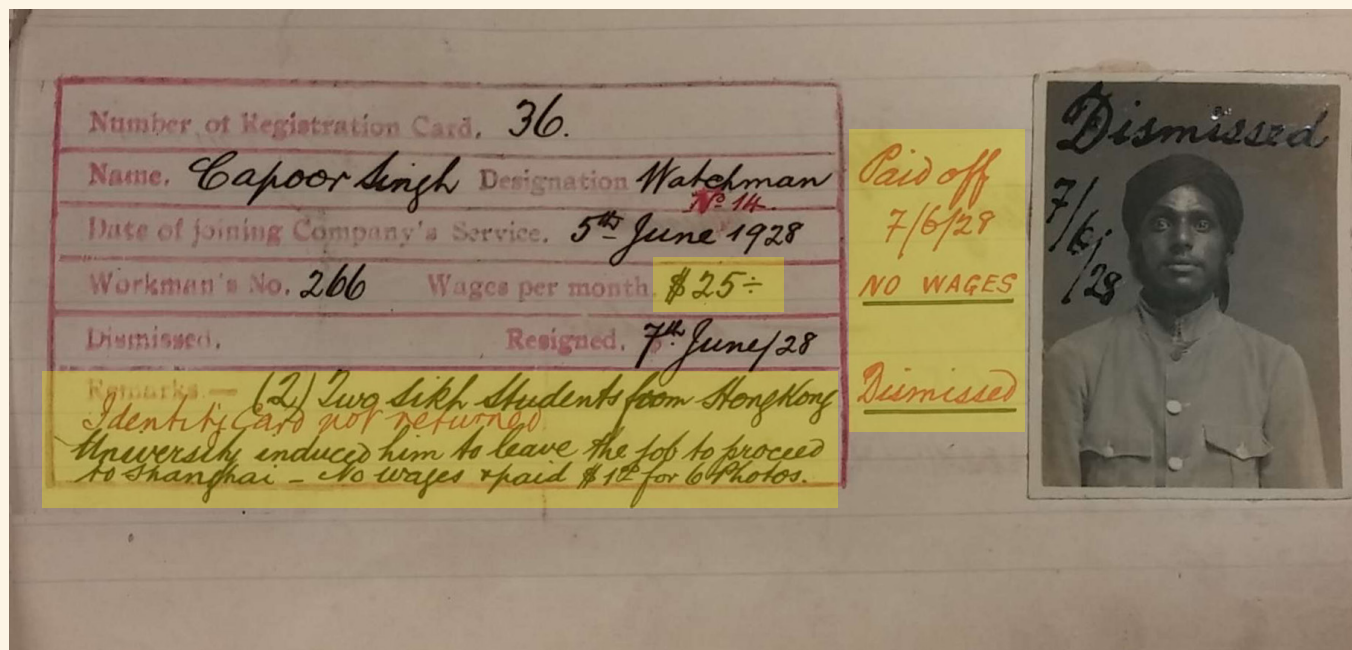 Number of Registration Card. 36.
Name. Capoor Singh Designation Watchman
No 14.
Date of joining Company's Service. 5th June 1928
Workman's No. 266 Wages per month. $25÷
Dismissed. Resigned. 7th June/28
Remarks.— (2) Two Sikh Students from HongKong
Identity Card not returned
University induced him to leave the job to proceed
to Shanghai – No wages & paid $1 for 6 Photos.
Paid off
7/6/28
NO WAGES
Dismissed
Dismissed
7/6/
/28